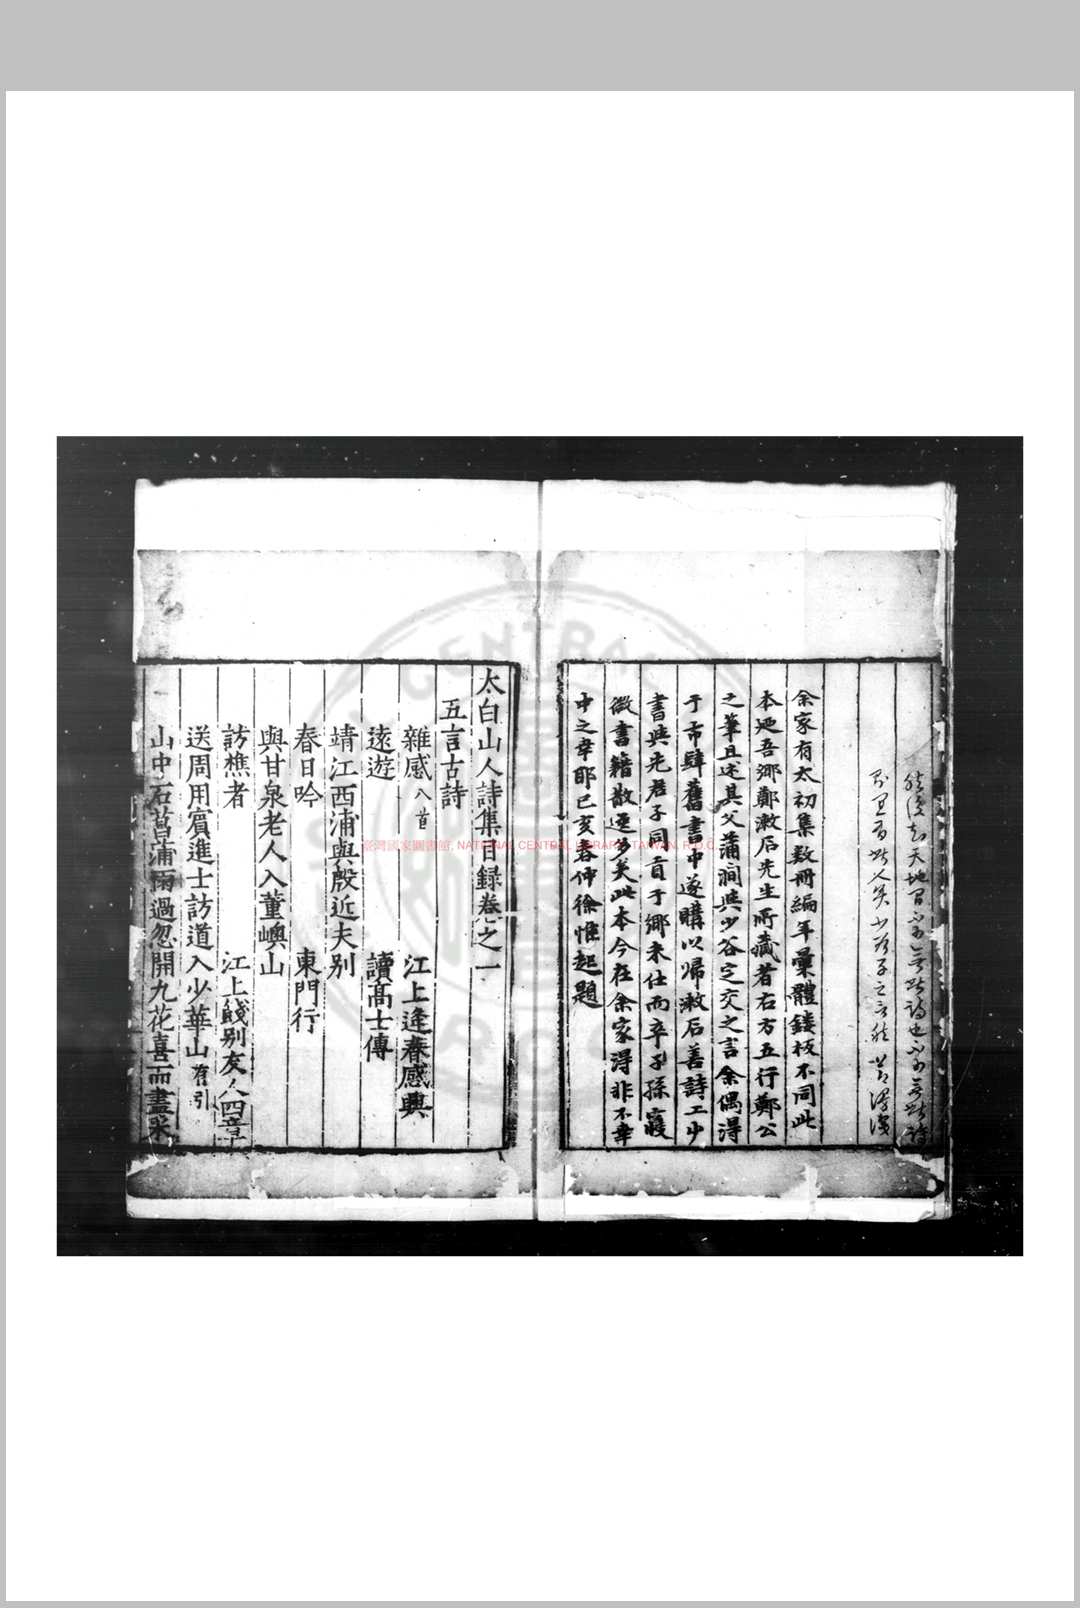 然後知天地間不可無此詩也不可無此詩
余家有太初集數冊編年彙體鋟板不同此
本迺吾鄉鄭漱石先生所藏者右方五行鄭公
之筆且述其父蒲澗與少谷定交之言余偶得
于市肆舊書中遂購以歸漱石善詩工少
書與先君子同貢于鄉未仕而卒子孫寢
微書籍散逸多矣此本今在余家得非不幸
中之幸耶己亥春仲徐惟起題
太白山人詩集目録卷之一
五言古詩
雜感八首 江上逢春感興
遠遊 讀高士傳
靖江西浦與殷近夫别
春日吟 東門行
與甘泉老人入董嶼山
訪樵者 江上餞别友人四章
送周用賓進士訪道入少華山有引
山中石菖蒲雨過忽開九花喜而盡采
臺灣國家圖書館, NATIONAL CENTRAL LIBRARY, TAIWAN, R.O.C.